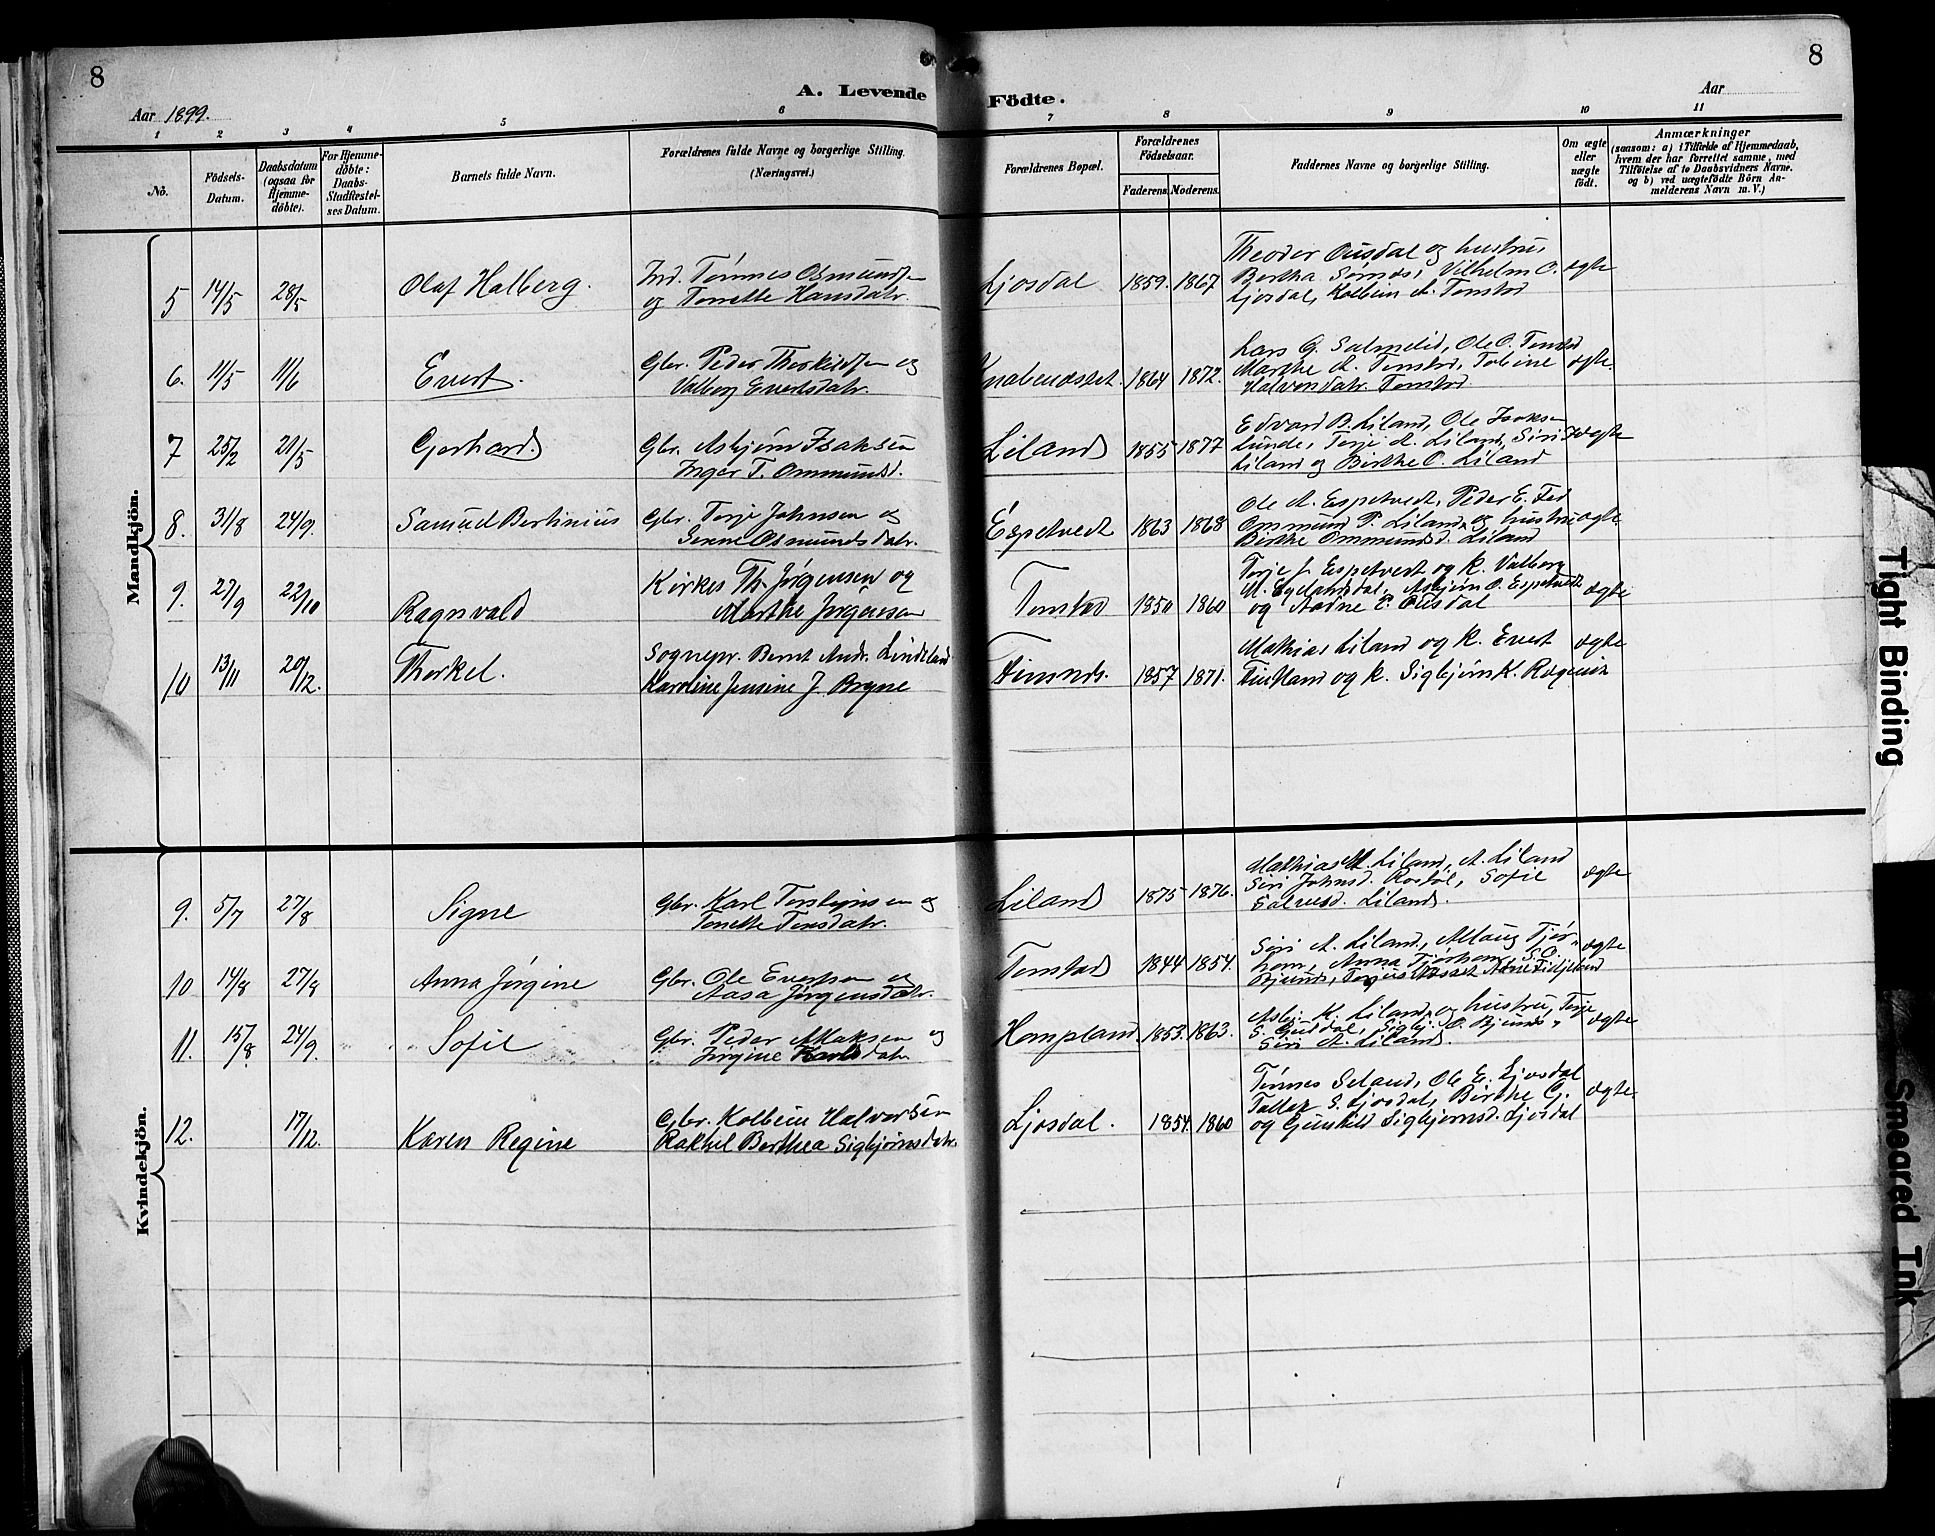 8
8
A. Levende Födte.
Aar 1899.
Aar
1 2 3 4 5 6 7 8 9 10 11
No.
Födsels-Datum.
Daabsdatum (ogsaa for Hjemme-döbte).
For Hjemme-döbte: Daabs-Stadfæstel-ses Datum.
Barnets fulde Navn.
Forældrenes fulde Navne og borgerlige Stilling. (Næringsvei.)
Forældrenes Bopæl.
Forældrenes Födselsaar.
Faderens. Moderens.
Faddernes Navne og borgerlige Stilling.
Om ægte eller uægte födt.
Anmærkninger
(saasom: a) i Tilfælde af Hjemmedaab, hvem der har forrettet samme, med Tilföielse af to Daabsvidners Navne. og b) ved uægtefödte Börn An-melderens Navn m. V.)
Mandkjön.
5 14/5 28/5 Olaf Halberg. Ind. Tönnes Osmundsen
og Tonette Hansdatr. Ljosdal 1859. 1867 Theodor Ousdal og hustru,
Bertha Sirnæs, Vilhelm O.
Ljosdal, Kolbein A. Tonstad ægte
6. 11/5 11/6 Evert. Gbr. Peder Therkildsen og
Valborg Evertsdatr. Knabenæstet. 1864 1872. Lars G. Salmelid, Ole O. Tonstad
Marthe A. Tonstad, Tobine
Halvorsdatr. Tonstad. ægte.
7 25/2 21/5 Gerhard Gbr. Asbjörn Isaksen
Inger T. Ommundsd. Liland 1855 1877 Edvard B. Liland, Ole Isaksen
Lunde, Terje A. Liland, Siri
Liland og Birthe O. Liland ægte
8. 31/8 24/9. Samuel Bertinius Gbr. Terje Johnsen og
Sinne Osmundsdatr. Espetvedt 1863 1868 Ole A. Espetvedt, Peder E. Fed
Ommund P. Liland og hustru
Birthe Ommundsd. Liland ægte
9. 27/9 22/10 Ragnvald Kirkes. Th. Jörgensen og
Marthe Jörgensen Tonstad 1850 1860 Terje J. Espetvedt og k. Valborg
M. Egelandsdal, Asbjörn O. Espetvedt
og Aadne E. Ousdal ægte
10 13/11 20/12. Therkel. Sognepr. Bernt Andr. Lindeland
Karoline Jensine J. Bryne 1857 1871. Mathias Liland og k. Evert
Fintland og k. Sigbjörn K. ægte
Kvindekjön.
9. 5/7 27/8 Signe Gbr. Karl Torsteinsen og
Tonette Tonsdatr. Liland 1875 1876. Mathias M. Liland, A. Liland
Siri Johnsd. Rostöl, Sofie
Salvesd. Liland. ægte
10 14/8 27/8 Anna Jörgine Gbr. Ole Evertsen og
Aasa Jörgensdatr. Tonstad 1844 1854. Siri A. Liland, Aslaug Tjör-
hom, Anna Tjörhom, S. O.
Bjunes, Terjus Aadne Fidjeland ægte
11. 15/8 24/9. Sofie Gbr. Peder Aslaksen og
Jörgine Karlsdatr Hompland. 1853. 1863. Asbj. K. Liland og hustru, Terje
S. Gusdal, Sigbj. O. Bjunes,
Siri A. Liland. ægte
12. 17/12. Karen Regine Gbr. Kolbein Halvorsen
Rakkel Berthea Sigbjörnsdatr. Ljosdal. 1854. 1860 Tönnes Seland, Ole E. Ljosdal
Tallep S. Ljosdal, Birthe G.
og Gunhild Sigbjörnsd. Ljosdal ægte
Tight Binding
Smeared Ink